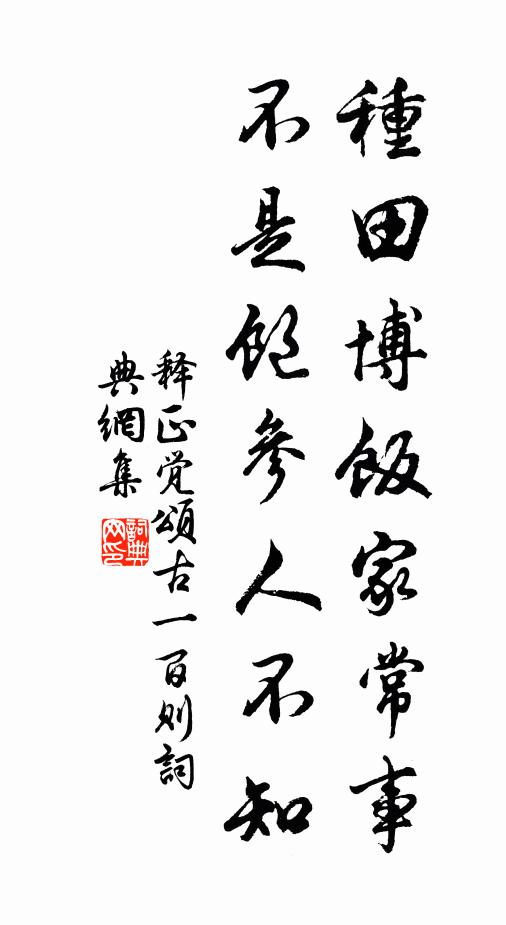 種田博飯家常事
不是飽參人不知
释正觉頌古一百则詞
典網集
詞典網印